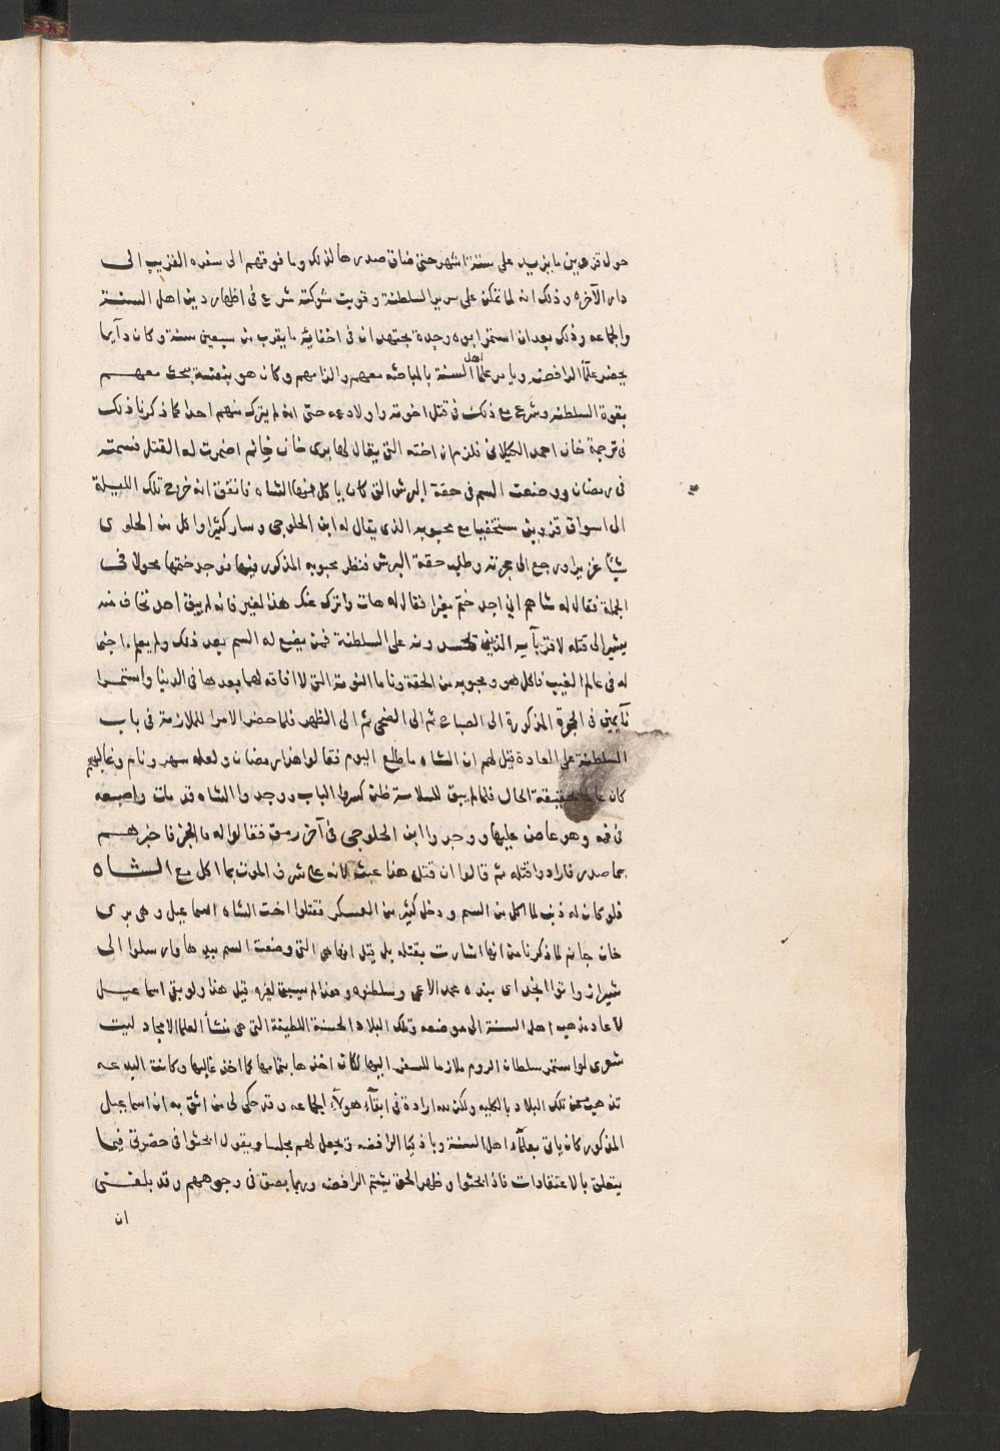 حول قزوين ما يزيد على ستة اشهر حتى ضاق صدرها لذلك وما فوقهم الى سفره القريب الى
دار الآخره وذلك انه لما تمكن على سرير السلطنة وقويت شوكته شرع فى اظهار دين اهل السنة
والجماعه وذلك بعد ان استمر ابوه وجده يجتهدان فى اخفائه ما يقرب من سبعين سنة وكان دآيما
يحضر علمآ الرافضه ويامر علمآ اهل السنة بالمباحثه معهم والزامهم وكان هو بنفسه يبحث معهم
بقوة السلطنه وشرع مع ذلك فى قتل اخوته واولاد عمه حتى انه لم يترك منهم احدا كما ذكرنا ذلك
فى ترجمة خان احمد الكيلانى فلزم ان اخته التى يقال لها برى خان خانم اضمرت له القتل فسمته
فى رمضان ووضعت السم فى حقة البرش التى كان ياكل منها الشاه فاتفق انه خرج تلك الليلة
الى اسواق قزوين متخفيا مع محبوبه الذى يقال له ابن الحلوجى وسار كثيرا واكل من الحلوى
شيأ غزيرا ورجع الى حجرته وطلب حقة البرش فنظر محبوبه المذكور فيها فوجد ختمها محولا فى
الجملة فقال له شاهم انى اجد ختم مغيرا فقال له هات واترك عنك هذا لغير فانه لم يبق احد نخاف منه
يشير الى قتله لاقربآيه الذين تحسدونه على السلطنة فمن يضع له السم بعد ذلك ولم يعلم ما خبى
له فى عالم الغيب فاكل هو ومحبوبه من الحقة وناما النومة التى لا افاقه لهما بعدها فى الدنيا واستمرا
نآيمين فى الحجرة المذكورة الى الصباح ثم الى الضحى ثم الى الظهر فلما حضر الامرا للملازمة فى باب
السلطنة على العادة قيل لهم ان الشاه ما طلع اليوم فقالوا هذا رمضان ولعله سهر ونام وغالبهم
كان حقيقة الحال فلما لم يبق للسلامة ظن كسروا الباب ووجدوا الشاه قد مات واصبعه
فى فمه وهو عاض عليها ووجدوا ابن الحلوجى فى آخر رمق فقالوا له ما الخبر فاخبرهم
بما صدر فارادوا قتله ثم قالوا ان قتل هذا عبث لانه على شرف الموت بما اكل مع الشاه
فلو كان له ذنب لما اكل من السم ودخل كثير من العسكر فقتلوا اخت الشاه اسماعيل وهى برى
خان جانم لما ذكرنا من انها اشارت بقتله بل قيل انها هى التى وضعت السم بيدها وارسلوا الى
شيراز واتوا بخداى بنده محمد الاعمى وسلطنوه وهذا لم يسبق لغيره قبل هذا ولو بقى اسماعيل
لاعاد مذهب اهل السنة الى موضعه وتلك البلاد الحسنة اللطيفة التى هى منشأ العلما الامجاد ليت
شعرى لو استمر سلطان الروم ملازما للسفر اليها لكان اخذها بتمامها كما اخذ غالبها وكانت البدعه
تذهب من تلك البلاد بالكليه ولكن لله ارادة فى ابقآء هولآء الجماعه وقد حكى لى من اثق به ان اسماعيل
المذكور كان ياتى بعلمآء اهل السنة وباذكيا الرافضه ويجعل لهم مجلسا ويقول ابحثوا فى حضرتى فيما
يتعلق بالاعتقادات فاذا بحثوا وظهر الحق يشتم الرافضه وربما بصق فى وجوههم وقد بلغنى
ان